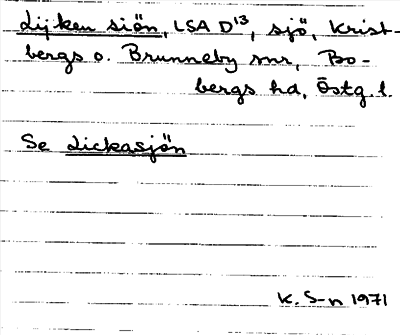 Lijken siön, LSA D13, sjö, Krist-
bergs o. Brunneby snr, Bo-
bergs hd, Östg. l.
Se Lickasjön
K. S-n 1971